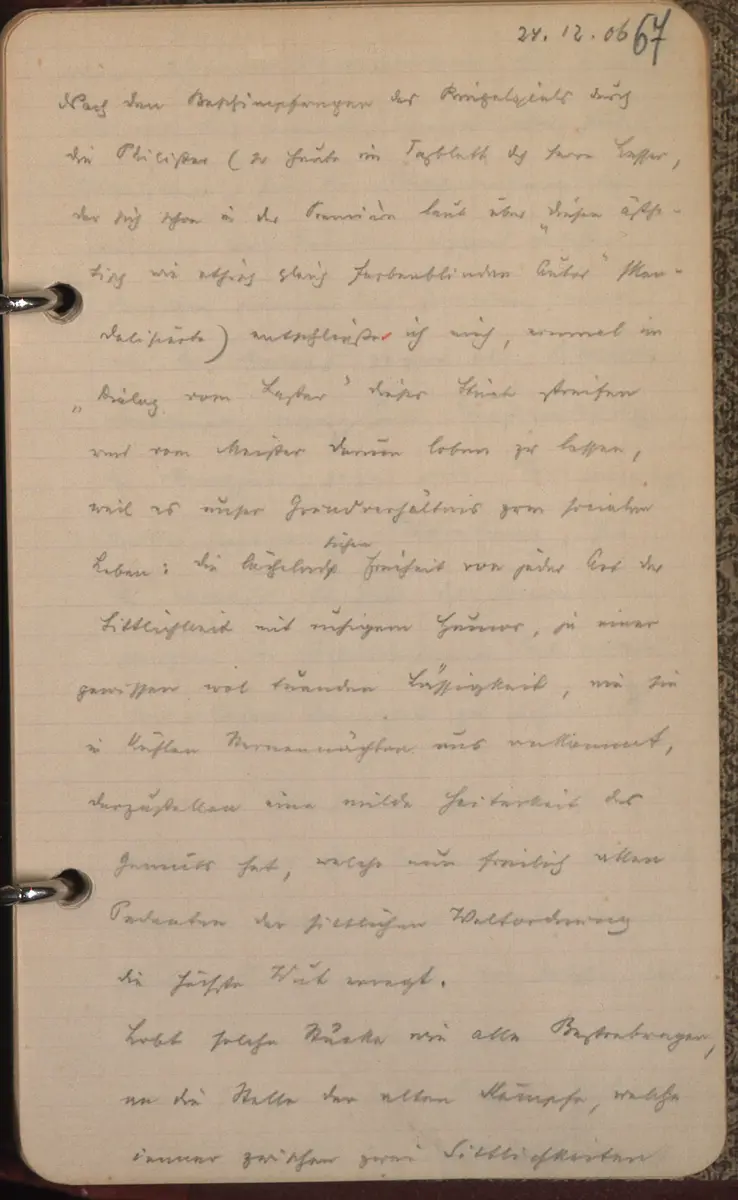 24. 12. 06 67
Nach den Beschimpfungen des Ringelspiels durch
die Philister (so heute im Tagblatt des Herrn Lasser,
der sich schon in der Première laut über „diesen ästhe-
tisch wie ethisch gleich farbenblinden Autor" skan-
dalisierte) entschließe ich mich, einmal im
„Dialog vom Laster" dieses Stück streifen
und vom Meister darum loben zu lassen,
weil es unser Grundverhältnis zum socialen
Leben: die Freiheit von jeder Art der
Sittlichkeit mit ruhigem Humor, ja einer
gewissen wol tuenden Lässigkeit, wie sie
in kühlen Sternennächten uns ankommt,
darzustellen eine milde Heiterkeit des
Gemüts hat, welche nun freilich allen
Pedanten der sittlichen Weltordnung
die höchste Wut erregt.
Lobt solche Stücke wie alle Bestrebungen,
an die Stelle der alten Kämpfe, welche
immer zwischen zwei Sittlichkeiten